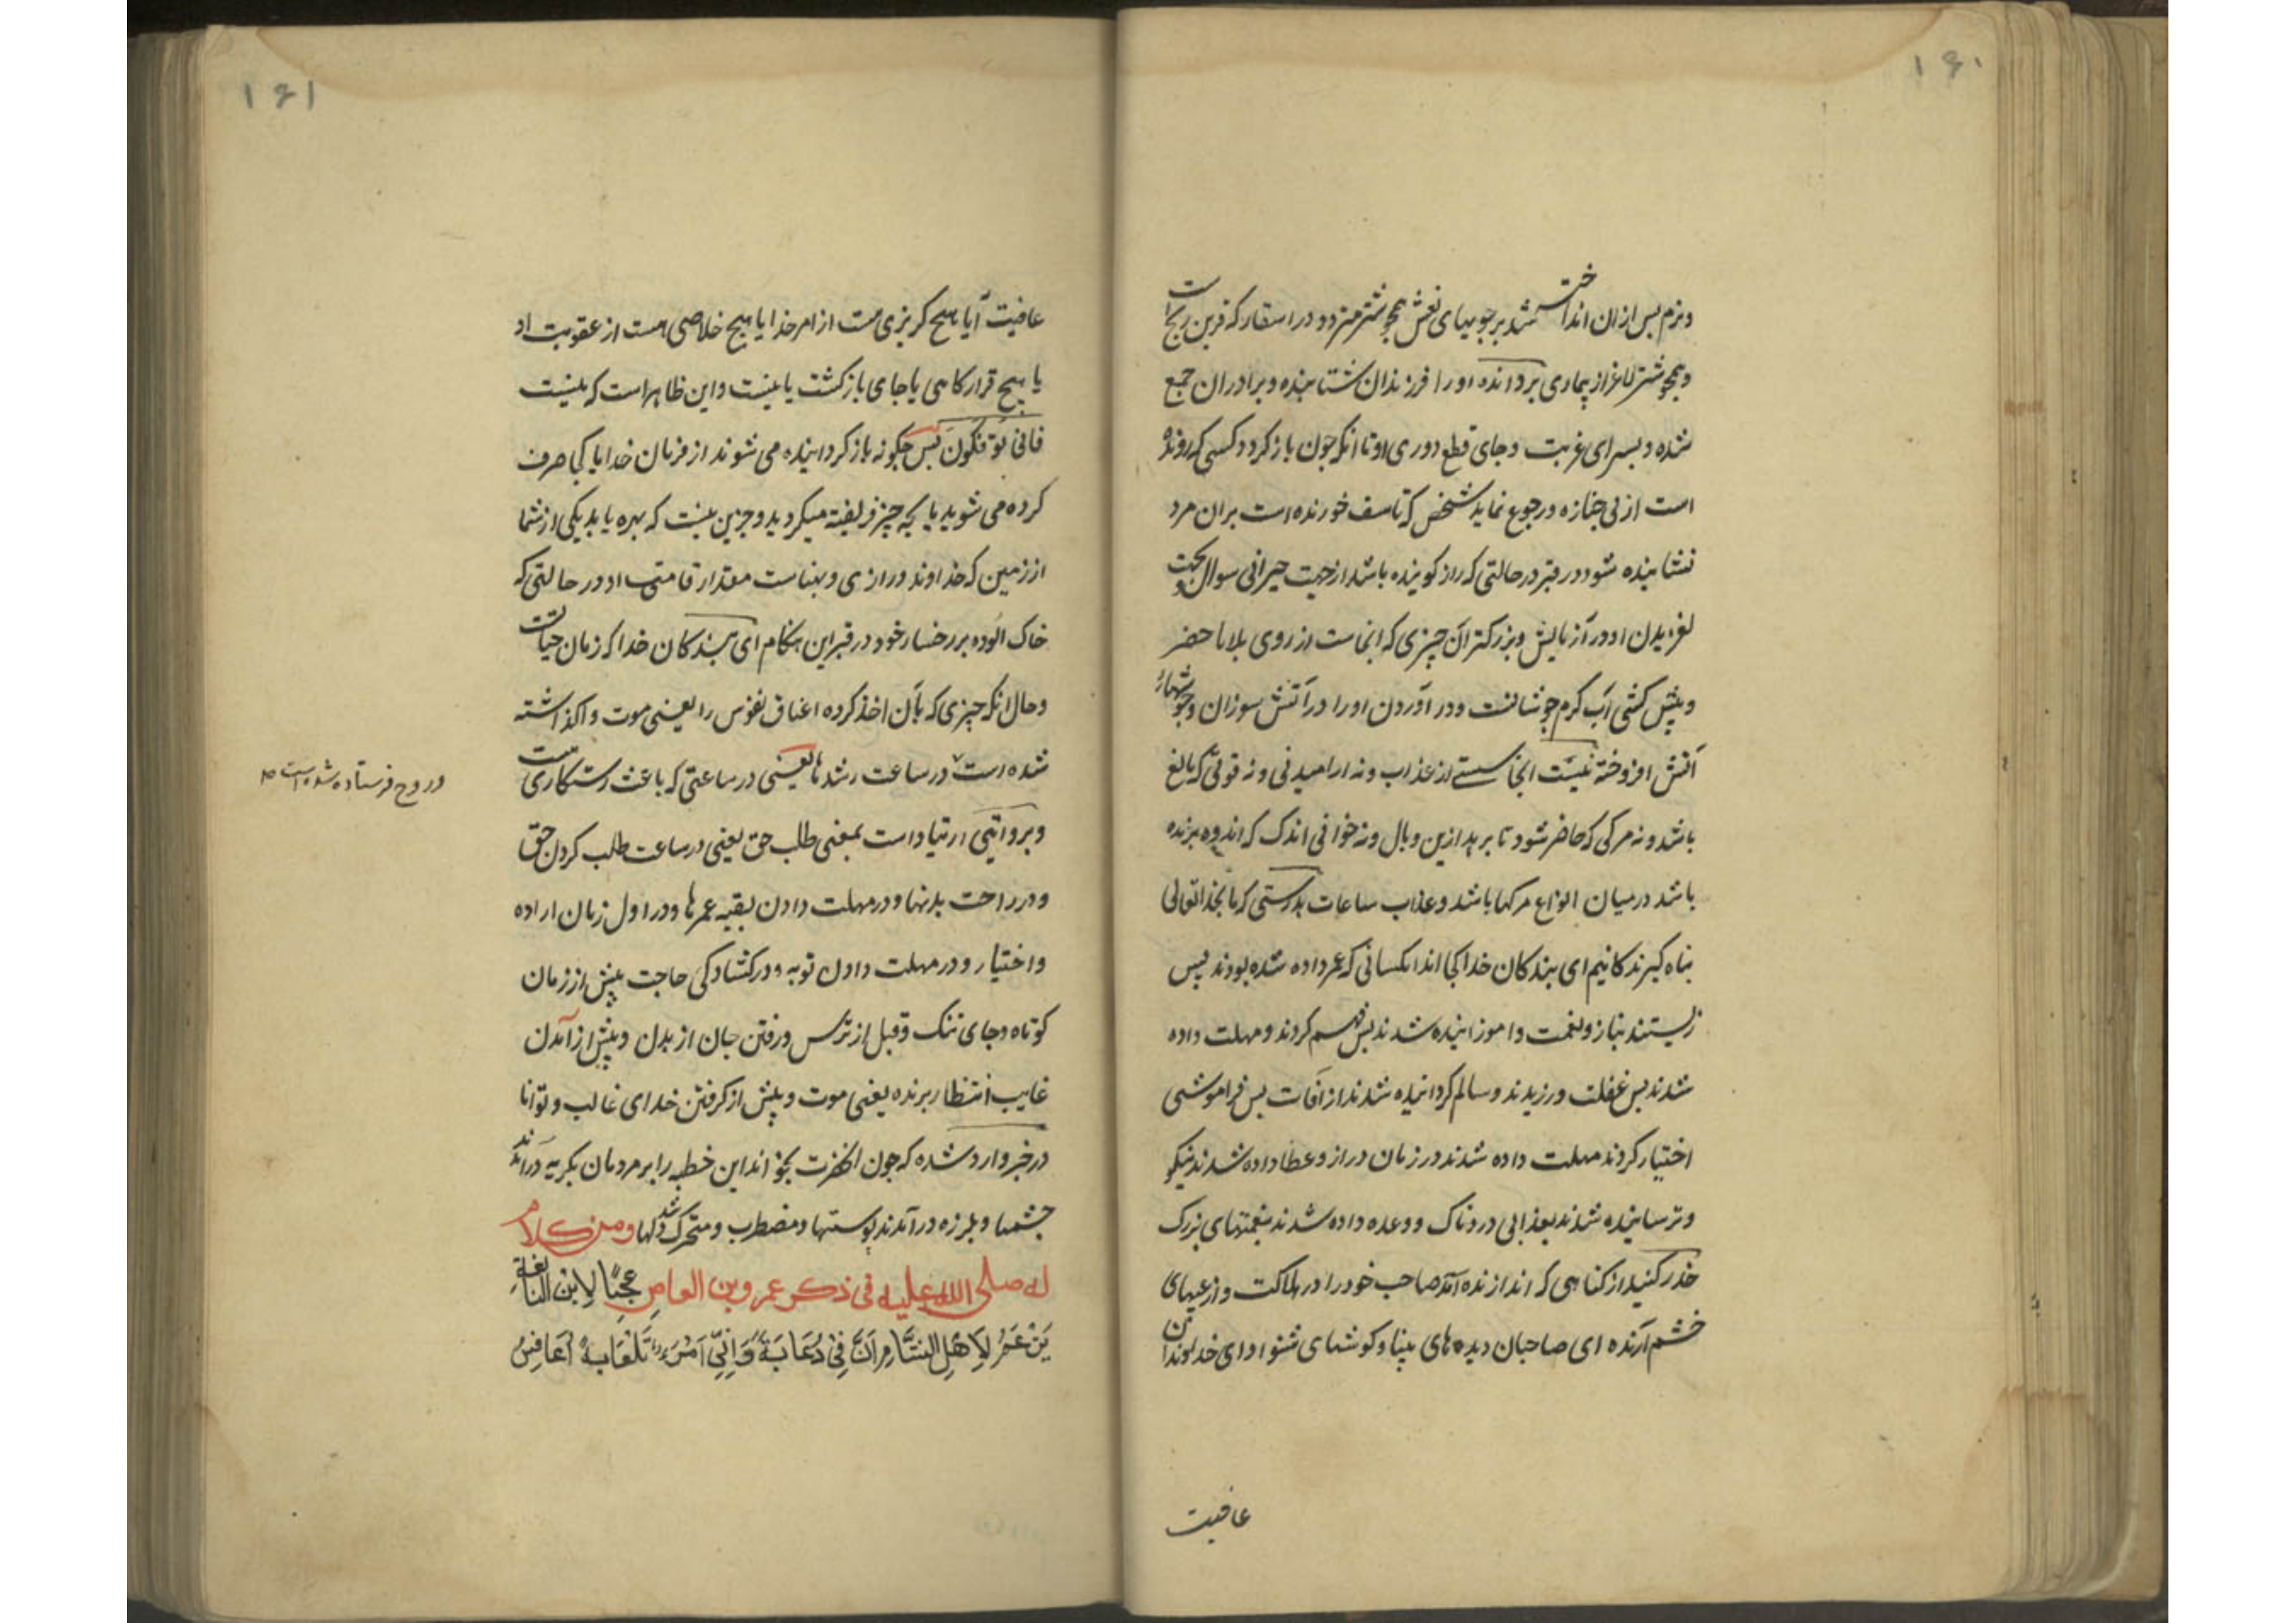 ۱۶۰
و نرم پس از ان انداخته شد بر چوبهای نعش همچو شتر متردد در اسفار که قرین رنج است
و همچو شتر لاغر از بیماری بردارنده او را فرزندان شتابنده و برادران جمع
شده و بسرای غربت و جای قطع دوری او تا انکه چون باز کردد کسی که رونده
است از پی جنازه و رجوع نماید شخصی که تاسف خورنده است بران مرد
نشانیده شود در قبر در حالتی که راز کوینده باشد از جهت حیرانی سوال و بحت
لغزیدن او در آزمایش و بزرکتر آن چیزی که انجاست از روی بلا ما حضر
و پیش کشی آب کرم جوشانست و در آوردن او را در آتش سوزان و جوشهای
آتش افروخته نیست انجا سستی از عذاب و نه ارامیدنی و نه قوتی که مانع
باشد و نه مرکی که حاضر شود تا برهد ازین وبال و نه خوابی اندک که اندوه برنده
باشد در میان انواع مرکها باشد و عذاب ساعات بدرستی که ما بخدایتعالی
پناه کیرندکانیم ای بندکان خدا کجا اند انکسانی که عمر داده شده بودند پس
زیستند بناز و نعمت و اموزانیده شدند پس فهم کردند و مهلت داده
شدند پس غفلت ورزیدند و سالم کردانیده شدند از آفات پس فراموشی
اختیار کردند مهلت داده شدند در زمان دراز و عطا داده شدند نیکو
و ترسانیده شدند بعذابی دردناک و وعده داده شدند بنعمتهای بزرک
حذر کنید از کناهی که اندازنده آمد صاحب خود را در هلاکت و از عیبهای
خشم آرنده ای صاحبان دیده های بینا و کوشهای شنوا و ای خداوندان
عافیت
۱۶۱
عافیت آیا هیچ کریزی هست از امر خدا یا هیچ خلاصی هست از عقوبت او
یا هیچ قرارکاهی یا جای بازکشت یا نیست و این ظاهر است که نیست
فانی تؤفکون پس چکونه باز کردانیده می شوند از فرمان خدا یا کجا صرف
کرده می شوید یا بچه چیز فریفته میکردید و جزین نیست که بهره یا بد یکی از شما
از زمین که خداوند درازی و پهناست مقدار قامتی او در حالتی که
خاک الوده بر رخسار خود در قبر این هنکام ای بندکان خدا که زمان حیات
و حال انکه چیزی که بآن اخذ کرده اعناق نفوس را یعنی موت واکذاشته
شده است در ساعت رشد ها یعنی در ساعتی که باعث رستکاری است
و روح فرستاده شده است
و بروایتی ارتیاد است بمعنی طلب حق یعنی در ساعت طلب کردن حق
و در راحت بدنها و در مهلت دادن بقیه عمرها و در اول زمان اراده
و اختیار و در مهلت دادن توبه و در کشادکی حاجت پیش از زمان
کوتاه و جای تنک و قبل از ترس و رفتن جان از بدن و پیش از آمدن
غایب انتظار برنده یعنی موت و پیش از کرفتن خدای غالب و توانا
در خبر وارد شده که چون انحضرت بخواند این خطبه را بر مردمان بکریه درآمدند
چشمها و بلرزه درآمدند پوستها و مضطرب و متحرک شد دلها و من کلام
له صلی الله علیه فی ذکر عمرو بن العاص عَجَبًا لِابْنِ النَّابِغَةِ
یَزْعَمُ لِاَهْلِ الشَّامِ اَنَّ فِیَّ دُعَابَةً وَ اِنِّی اَمْرَءٌ تَلْعَابَةٌ اُعَافِسُ